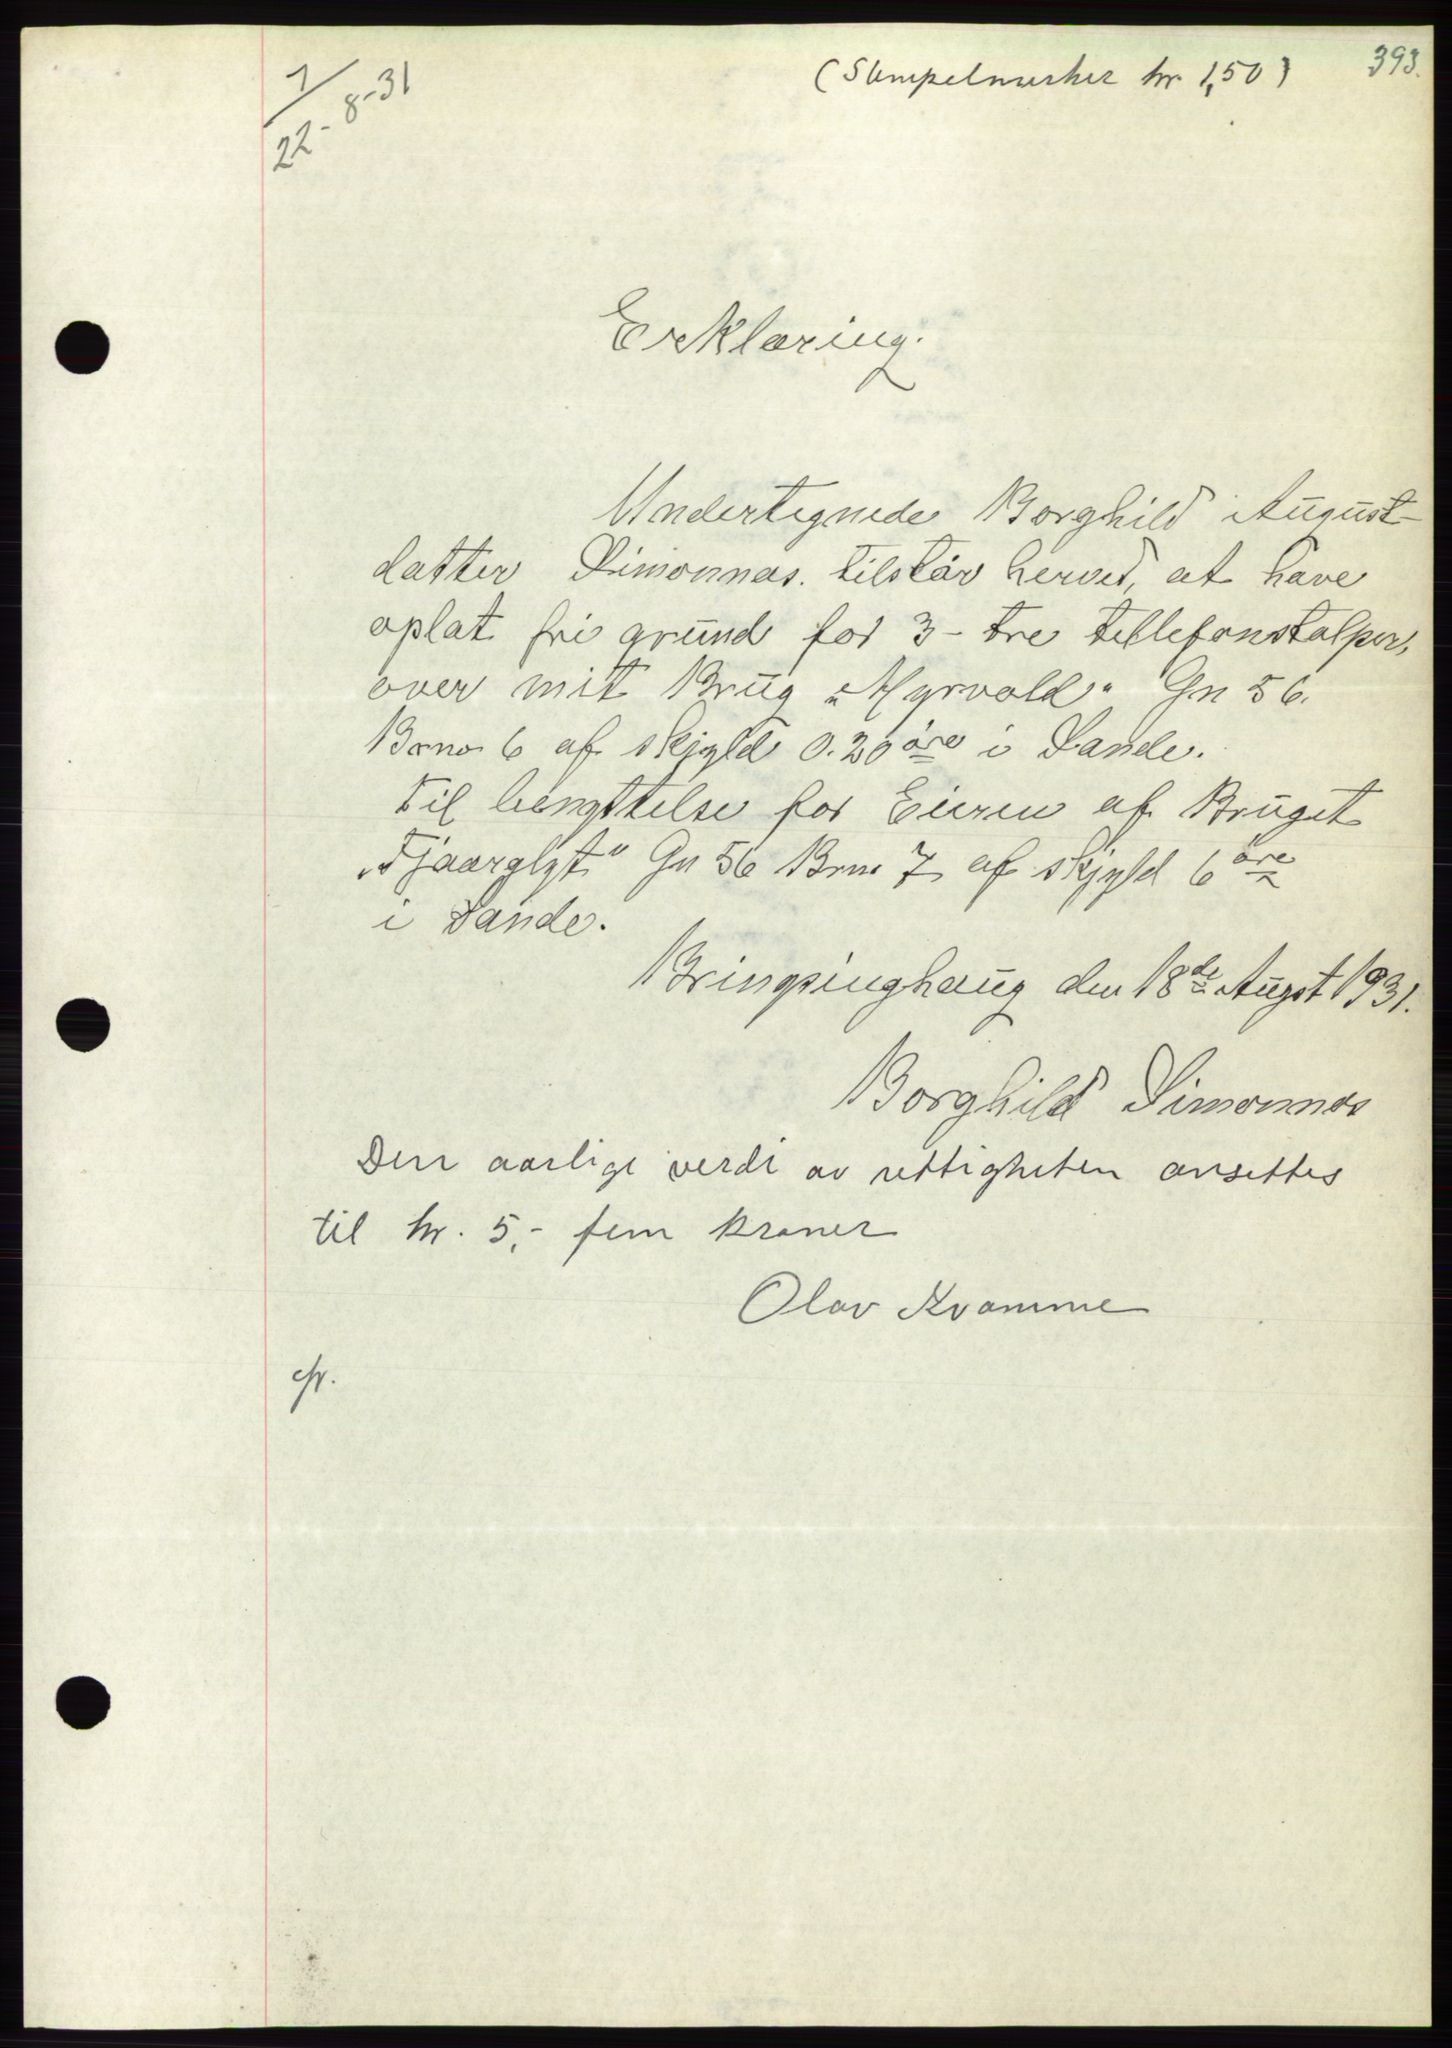 393.
(Stempelmerker kr. 1,50)
1/22-8-31
Erklæring.
Undertegnede Borghild August-
datter Simonnes. tilstår herved, at have
oplat fri grund for 3 - tre tellefonstolper,
over mit Brug „Myrvold" Gn 56.
Brno 6 af skjyld 0.20 øre i Sande.
til benyttelse for Eieren af Bruget
„Fjaarglyt" Gn 56 Brno 7 af skjyld 6 øre
i Sande.
Bringsinghaug den 18de Augst 1931.
Borghild Simonnes
Den aarlige verdi av rettigheten ansettes
til kr. 5,- fem kroner
Olav Kvamme